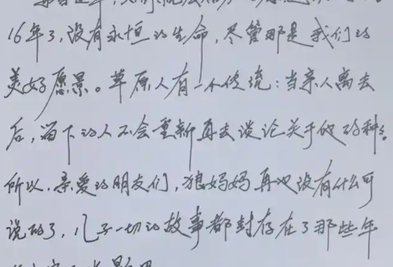 16年了,没有永恒的生命,尽管那是我们的
美好愿景。草原人有一个传统:当亲人离去
后,留下的人不会重新再去谈论关于他的种种。
所以,亲爱的朋友们,狼妈妈再也没有什么可
说的了,儿子一切的故事都封存在了那些年